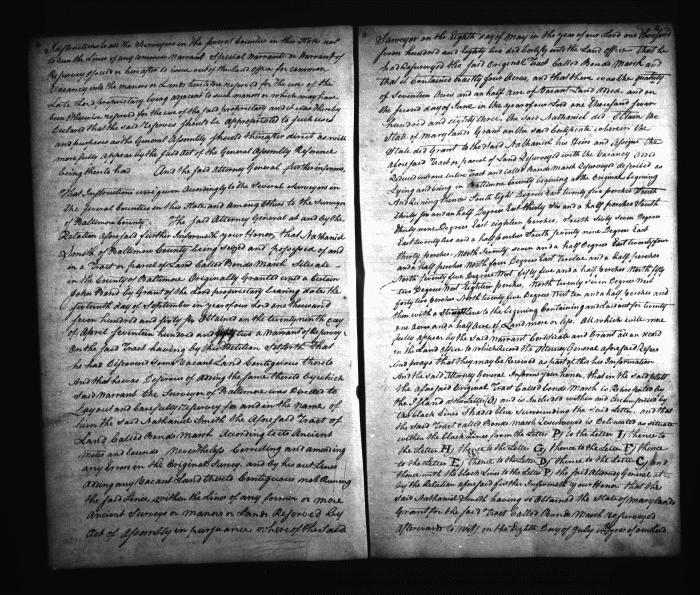 Instructions to all the Surveyors in the several Counties in this State not
to run the Lines of any common Warrant Special Warrant or Warrant of
Resurvey issued or hereafter to issue out of the Land Office for common
Vacancy into the manors or Lands heretofore reserved for the use of the
Late Lord proprietary lying adjacent to such manors or which may have
been otherwise reserved for the use of the said proprietary and it was thereby
Declared that the said reserves should be appropriated to such uses
and purposes as the General Assembly should thereafter direct as will
more fully appear by the said act of the General Assembly Reference
being thereto had And the said Attorney General further informs
That Instructions were given Accordingly to the several Surveyors in
the several Counties in this State and Among others to the Surveyor
of Baltimore County. The said Attorney General at and by the
Relation aforesaid further Informeth your Honor, that Nathaniel
Smith of Baltimore County being Seized and possessed of and
in a Tract or parcel of Land Called Bonds Marsh Situate
in the County of Baltimore Originally Granted unto a Certain
John Bond by Grant of the Lord proprietary bearing date the
fifteenth day of September in year of our Lord one thousand
seven hundred and sixty four Obtained on the twenty ninth day
of April Seventeen hundred and eighty two a Warrant of Resurvey
On the said Tract having by his Petition Setforth that
he had Discovered some Vacant Land Contiguous thereto
And that he was Desirous of Adding the same thereto by which
said Warrant the Surveyor of Baltimore was Directed to
Lay out and Carefully Resurvey for and in the name of
him the said Nathaniel Smith the Aforesaid Tract of
Land Called Bonds Marsh According to its Ancient
metes and bounds Nevertheless Correcting and amending
any Errors in the Original Survey and by his out Lines
Adding any Vacant Land thereto Contiguous not Running
the said Lines within the Lines of any former or more
Ancient Surveys or manors or Lands Reserved by
Act of Assembly in pursuance whereof the said
Surveyor on the Eighth day of May in the year of our Lord one thousand
seven hundred and eighty two did Certify into the Land Office that he
had Resurveyed the said Original Tract Called Bonds Marsh and
that it Contained exactly four Acres, and that there was the quantity
of Seventeen Acres and an half Acre of Vacant Land Added and on
the second day of June in the year of our Lord one Thousand seven
hundred and eighty three, the said Nathaniel did Obtain the
State of Marylands Grant on the said Certificate wherein the
State did Grant to the said Nathaniel his Heirs and Assigns the
aforesaid Tract or parcel of Land Resurveyed with the Vacancy Added
Reduced into one entire Tract and Called Bonds Marsh Resurveyed described as
Lying and being in Baltimore County begining at the Original begining
And Running thence South eight Degrees East twenty five perches South
thirty four and an half Degrees East thirty six and a half perches South
thirty nine Degrees East eighteen perches, South Sixty seven Degrees
East twenty two and a half perches South seventy nine Degrees East
thirty perches, North Seventy seven and a half Degrees East twenty four
and a half perches North four Degrees East twelve and a half perches
North Seventy five Degrees West fifty five and a half perches North fifty
two Degrees West Eighteen perches, North Twenty seven Degrees West
forty two perches North twenty five Degrees West ten and a half perches and
then with a Straight line to the begining Containing and laid out for twenty
one Acres and a half Acre of Land more or less. All which will more
fully appear by the said Warrant Certificate and Grant all on record
in the Land Office to which record the Attorney General aforesaid Refers
And prays that they may be received as part of this his Information
And the said Attorney General Informs your honor, that in the said plat
the Aforesaid Original Tract Called Bonds Marsh is Represented by
the Island & the Letter (A) and is included within and Circumscribed by
the black Lines Shaded blue surrounding the said Letter, and that
the said Tract Called Bonds Marsh Resurveyed is Delineated as situate
within the black Lines from the Letter P, to the Letter I, thence to
the Letter H, thence to the Letter G, thence to the Letter F, thence
to the Letter E, thence to the Letter D, thence to the Letter C, and
thence with the black Lines to the Letter P the said Attorney General at
by the Relation aforesaid further Informeth your Honor that the
said Nathaniel Smith having so Obtained the State of Marylands
Grant for the said Tract Called Bonds Marsh resurveyed
afterwards to wit, on the Eighth Day of July in year of our Lord